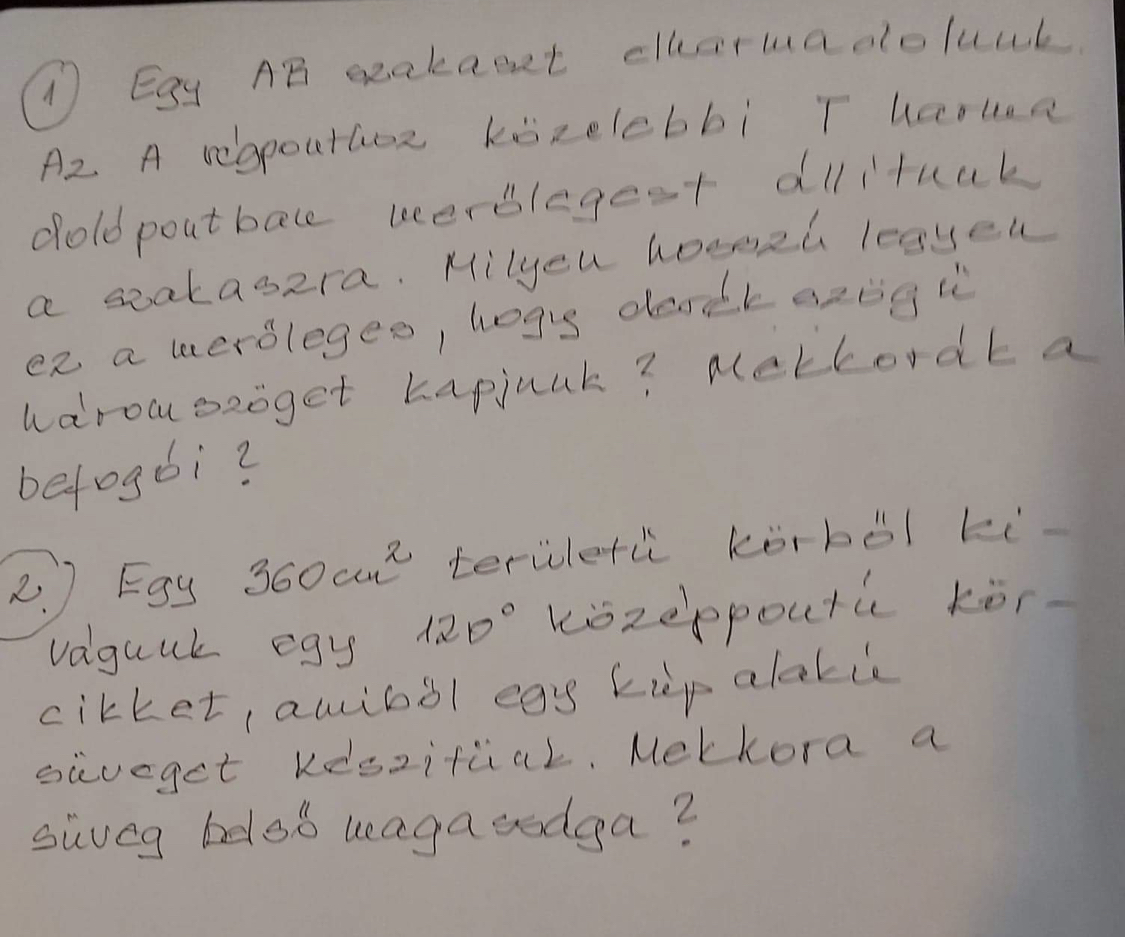 1) Egy AB szakaszt elharmadolunk.
Az A végponthoz közelebbi T harma
dolópontban merőlegest állítunk
a szakaszra. Milyen hosszú legyen
ez a merőleges, hogy derékszögű
háromszöget kapjunk? Mekkorák a
befogói?
2.) Egy 360 cm² területű körből ki-
vágunk egy 120° középpontú kör-
cikket, amiből egy kúp alakú
süveget készítünk. Mekkora a
süveg belső magassága?